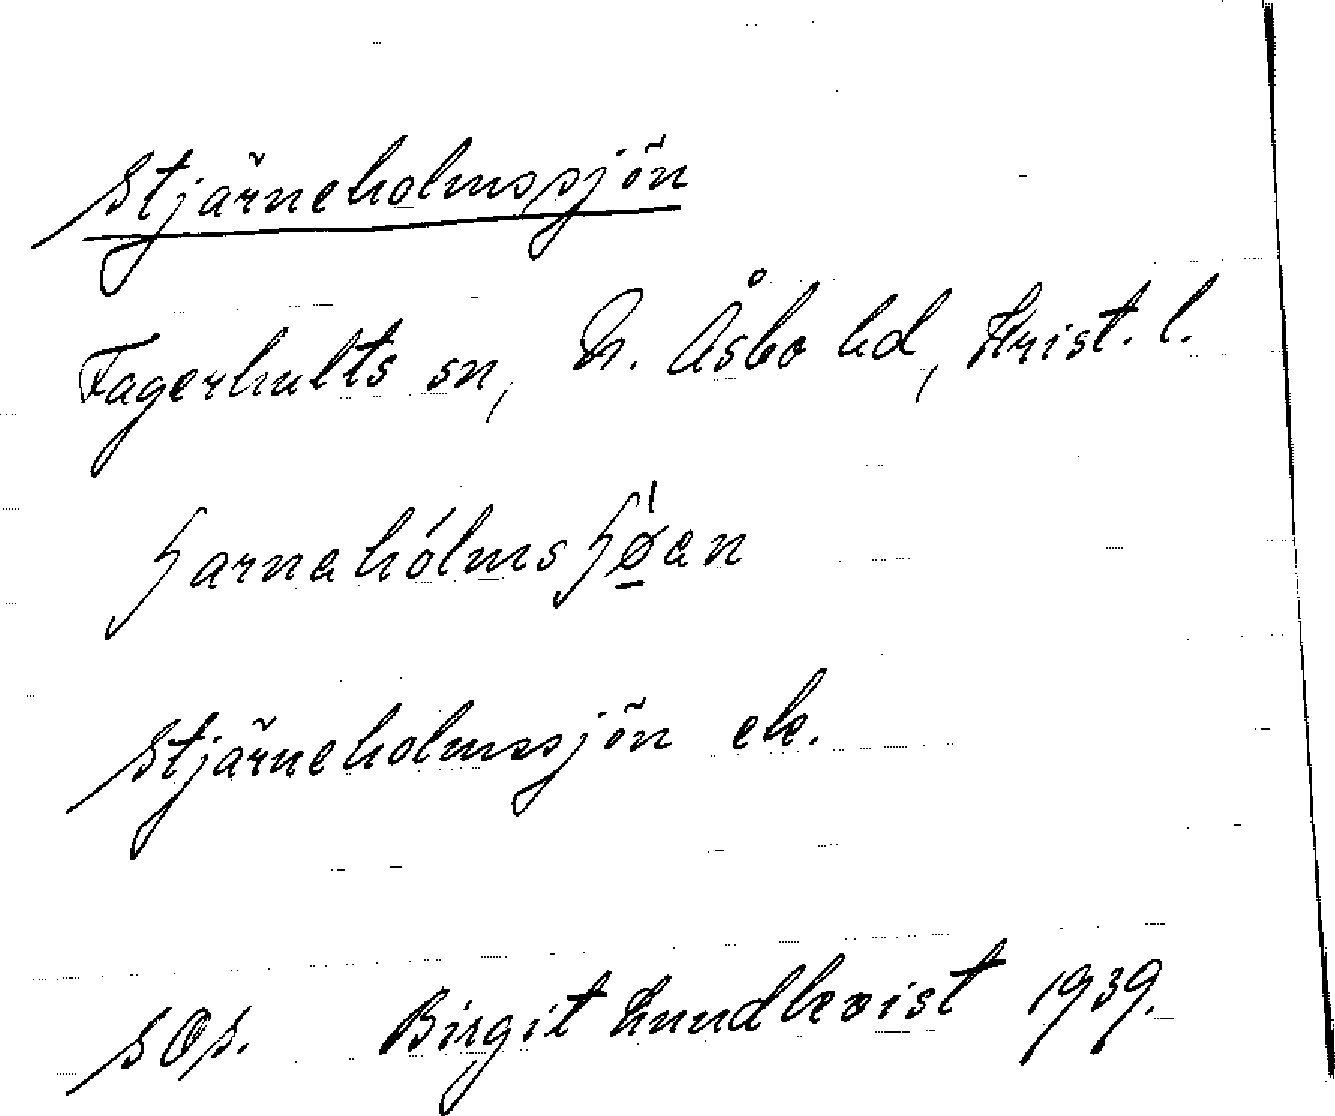 Stjärneholmssjön
Fagerhults sn, N. Åsbo hd, Krist. l.
ʃarnahólmsʃǿ̱en
Stjärneholmssjön ek.
SOf. Birgit Lundkvist 1939.